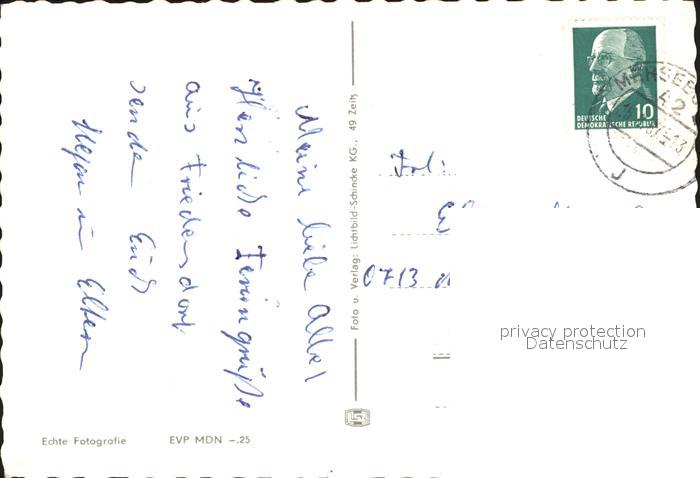 Meine liebe
Herzliche Feriengrüße
aus Friedensdorf
sende Euch
Eltern
Foto u. Verlag: Lichtbild-Schincke KG., 49 Zeitz
Echte Fotografie EVP MDN –.25
DEUTSCHE
DEMOKRATISCHE REPUBLIK
10
MERSEB
42
Frl.
privacy protection
Datenschutz